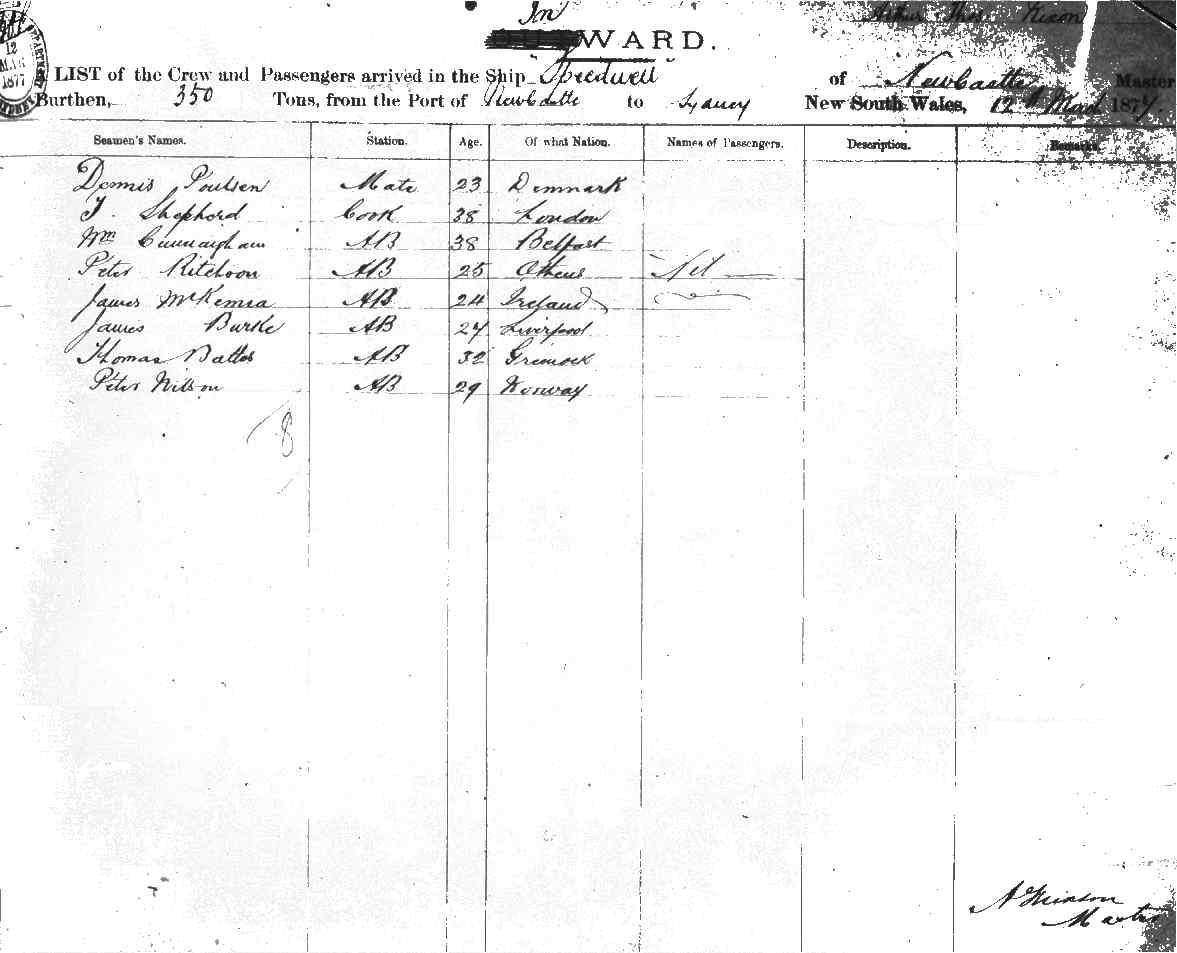 12
MAR
1877
In
WARD.
Arthur Thos.
LIST of the Crew and Passengers arrived in the Ship "Speedwell" of Newcastle Master
Burthen, 350 Tons, from the Port of Newcastle to Sydney New South Wales, 12th March 1877
Seamen's Names. Station. Age. Of what Nation. Names of Passengers. Description. Remarks.
Dennis Poulsen Mate 23 Denmark
J. Shephord Cook 38 London
Wm Cunnaigham AB 38 Belfast
Peter AB 25 Athens Nil
James McKenna AB 24 Ireland
James Burke AB 27 Liverpool
Thomas Battes AB 32 Greenock
Peter Nilson AB 29 Norway
8
Master